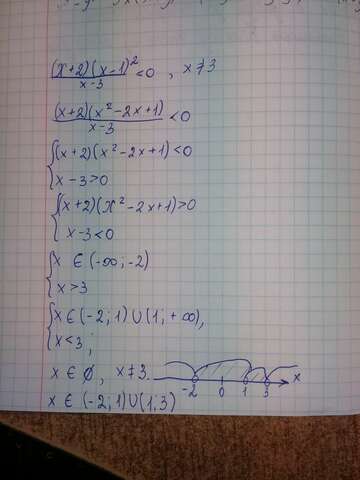 (x+2)(x-1)²/x-3 <0 , x≠3
(x+2)(x²-2x+1)/x-3 <0
{(x+2)(x²-2x+1)<0
x-3>0
{(x+2)(x²-2x+1)>0
x-3<0
{x ∈ (-∞;-2)
x>3
{x∈(-2;1)∪(1;+∞),
x<3;
x ∈ ∅, x≠3.
-2 0 1 3 x
x ∈ (-2;1)∪(1;3)